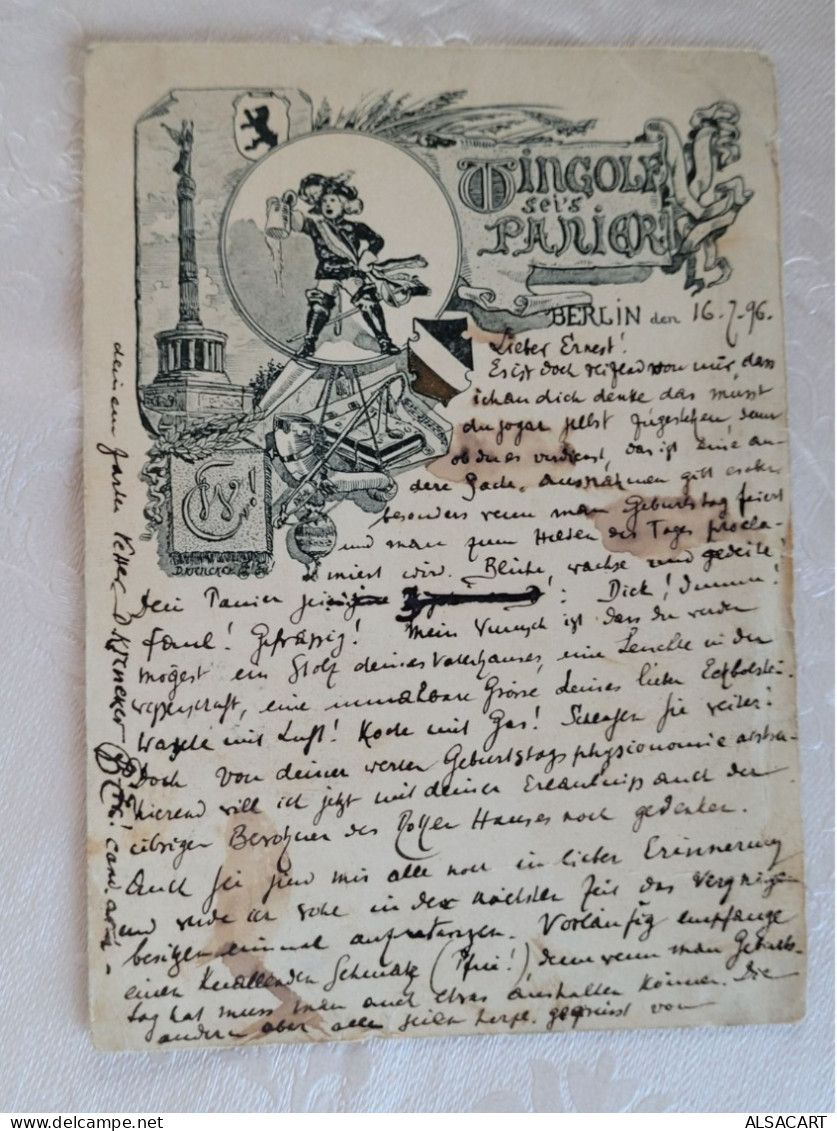 WINGOLF
sei's
PANIER!
BERLIN den 16.7.96.
Lieber Ernest!
Es ist doch reizend von mir, dass
ich an dich denke das musst
du sogar selbst zugestehen, denn
ob du es verdienst, das ist eine an-
dere Sache. Ausnahmen gilt es aber
besonders wenn man Geburtstag feiert
und man zum Helden des Tages procla-
miert wird. Blühe, wachse und gedeihe!
Dein Panier sei : Dick! Dumm!
faul! Gefrässig! Mein Wunsch ist dass du werden
mögest ein Stolz deines Vaterhauses, eine Leuchte in der
Wissenschaft, eine Grösse deines lieben
mit Luft! Koche mit Gas! Sie weiter!
Doch von deiner werten Geburtstagsphysionomie abstra-
hierend will ich jetzt mit deiner Erlaubniss auch der
übrigen Bewohner des Hauses noch gedenken.
Auch sie sind mir alle noch in lieber Erinnerung
und werde ich wohl in der nächsten Zeit das Vergnügen
besitzen einmal Vorläufig empfange
einen knallenden Schmatz (Pfui!) denn wenn man Geburts-
tag hat muss man auch etwas aushalten können. Die
andern aber alle seien herzl. gegrüsst von
deinem Vetter D Krencker cand. arch.
W
D. KRENCKER
ALSACART